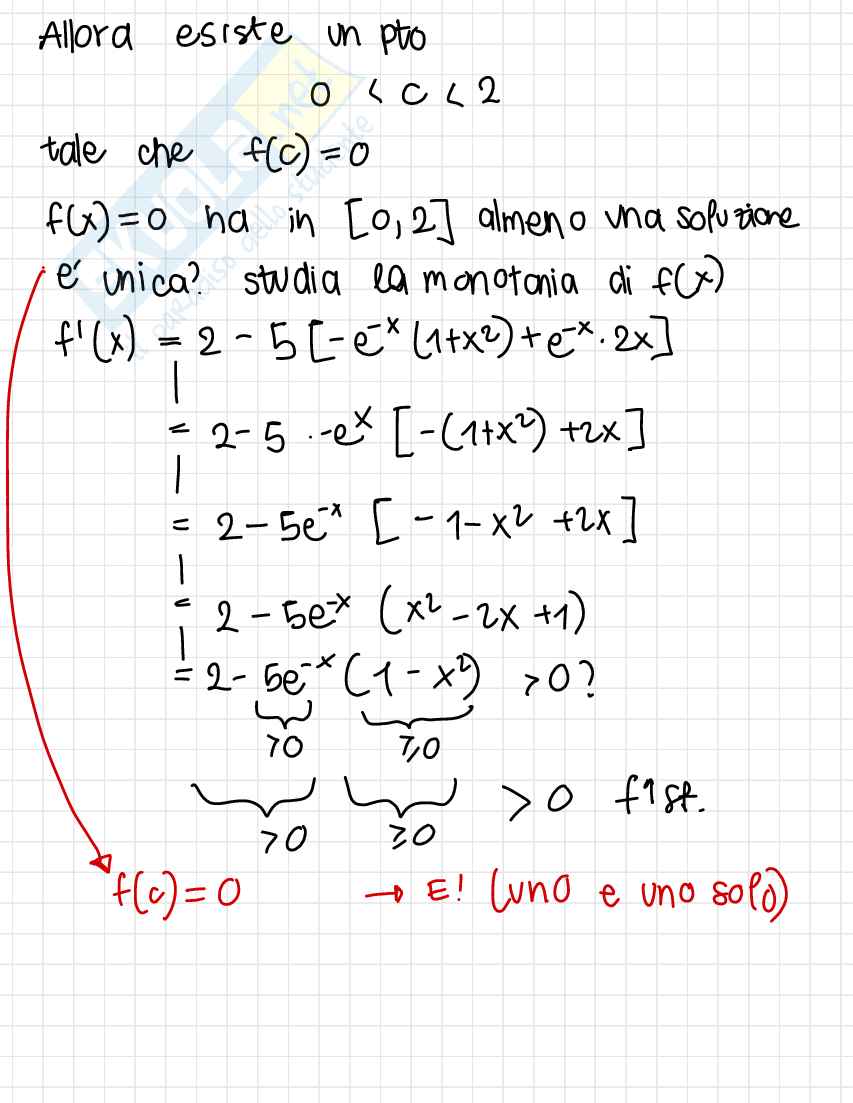 Allora esiste un pto
0 < c < 2
tale che f(c) = 0
f(x) = 0 ha in [0,2] almeno una soluzione
è unica? studia la monotonia di f(x)
f'(x) = 2 - 5 [-e^-x (1+x²) + e^-x · 2x]
= 2 - 5 · -e^x [-(1+x²) + 2x]
= 2 - 5e^-x [-1 - x² + 2x]
= 2 - 5e^-x (x² - 2x + 1)
= 2 - 5e^-x (1 - x²) > 0?
>0 ≥0
>0 ≥0 > 0 f↑st.
f(c) = 0 → E! (uno e uno solo)
SKUOLA.net
il paradiso dello studente